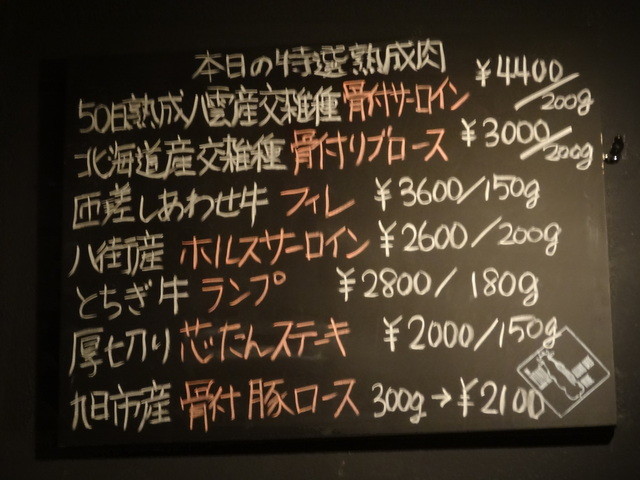 本日の特選熟成肉
50日熟成八雲産交雑種 骨付サーロイン ¥4400/200g
北海道産交雑種 骨付リブロース ¥3000/200g
匝瑳しあわせ牛 フィレ ¥3600/150g
八街産 ホルスサーロイン ¥2600/200g
とちぎ牛 ランプ ¥2800/180g
厚切り 芯たんステーキ ¥2000/150g
旭市産 骨付豚ロース 300g→¥2100